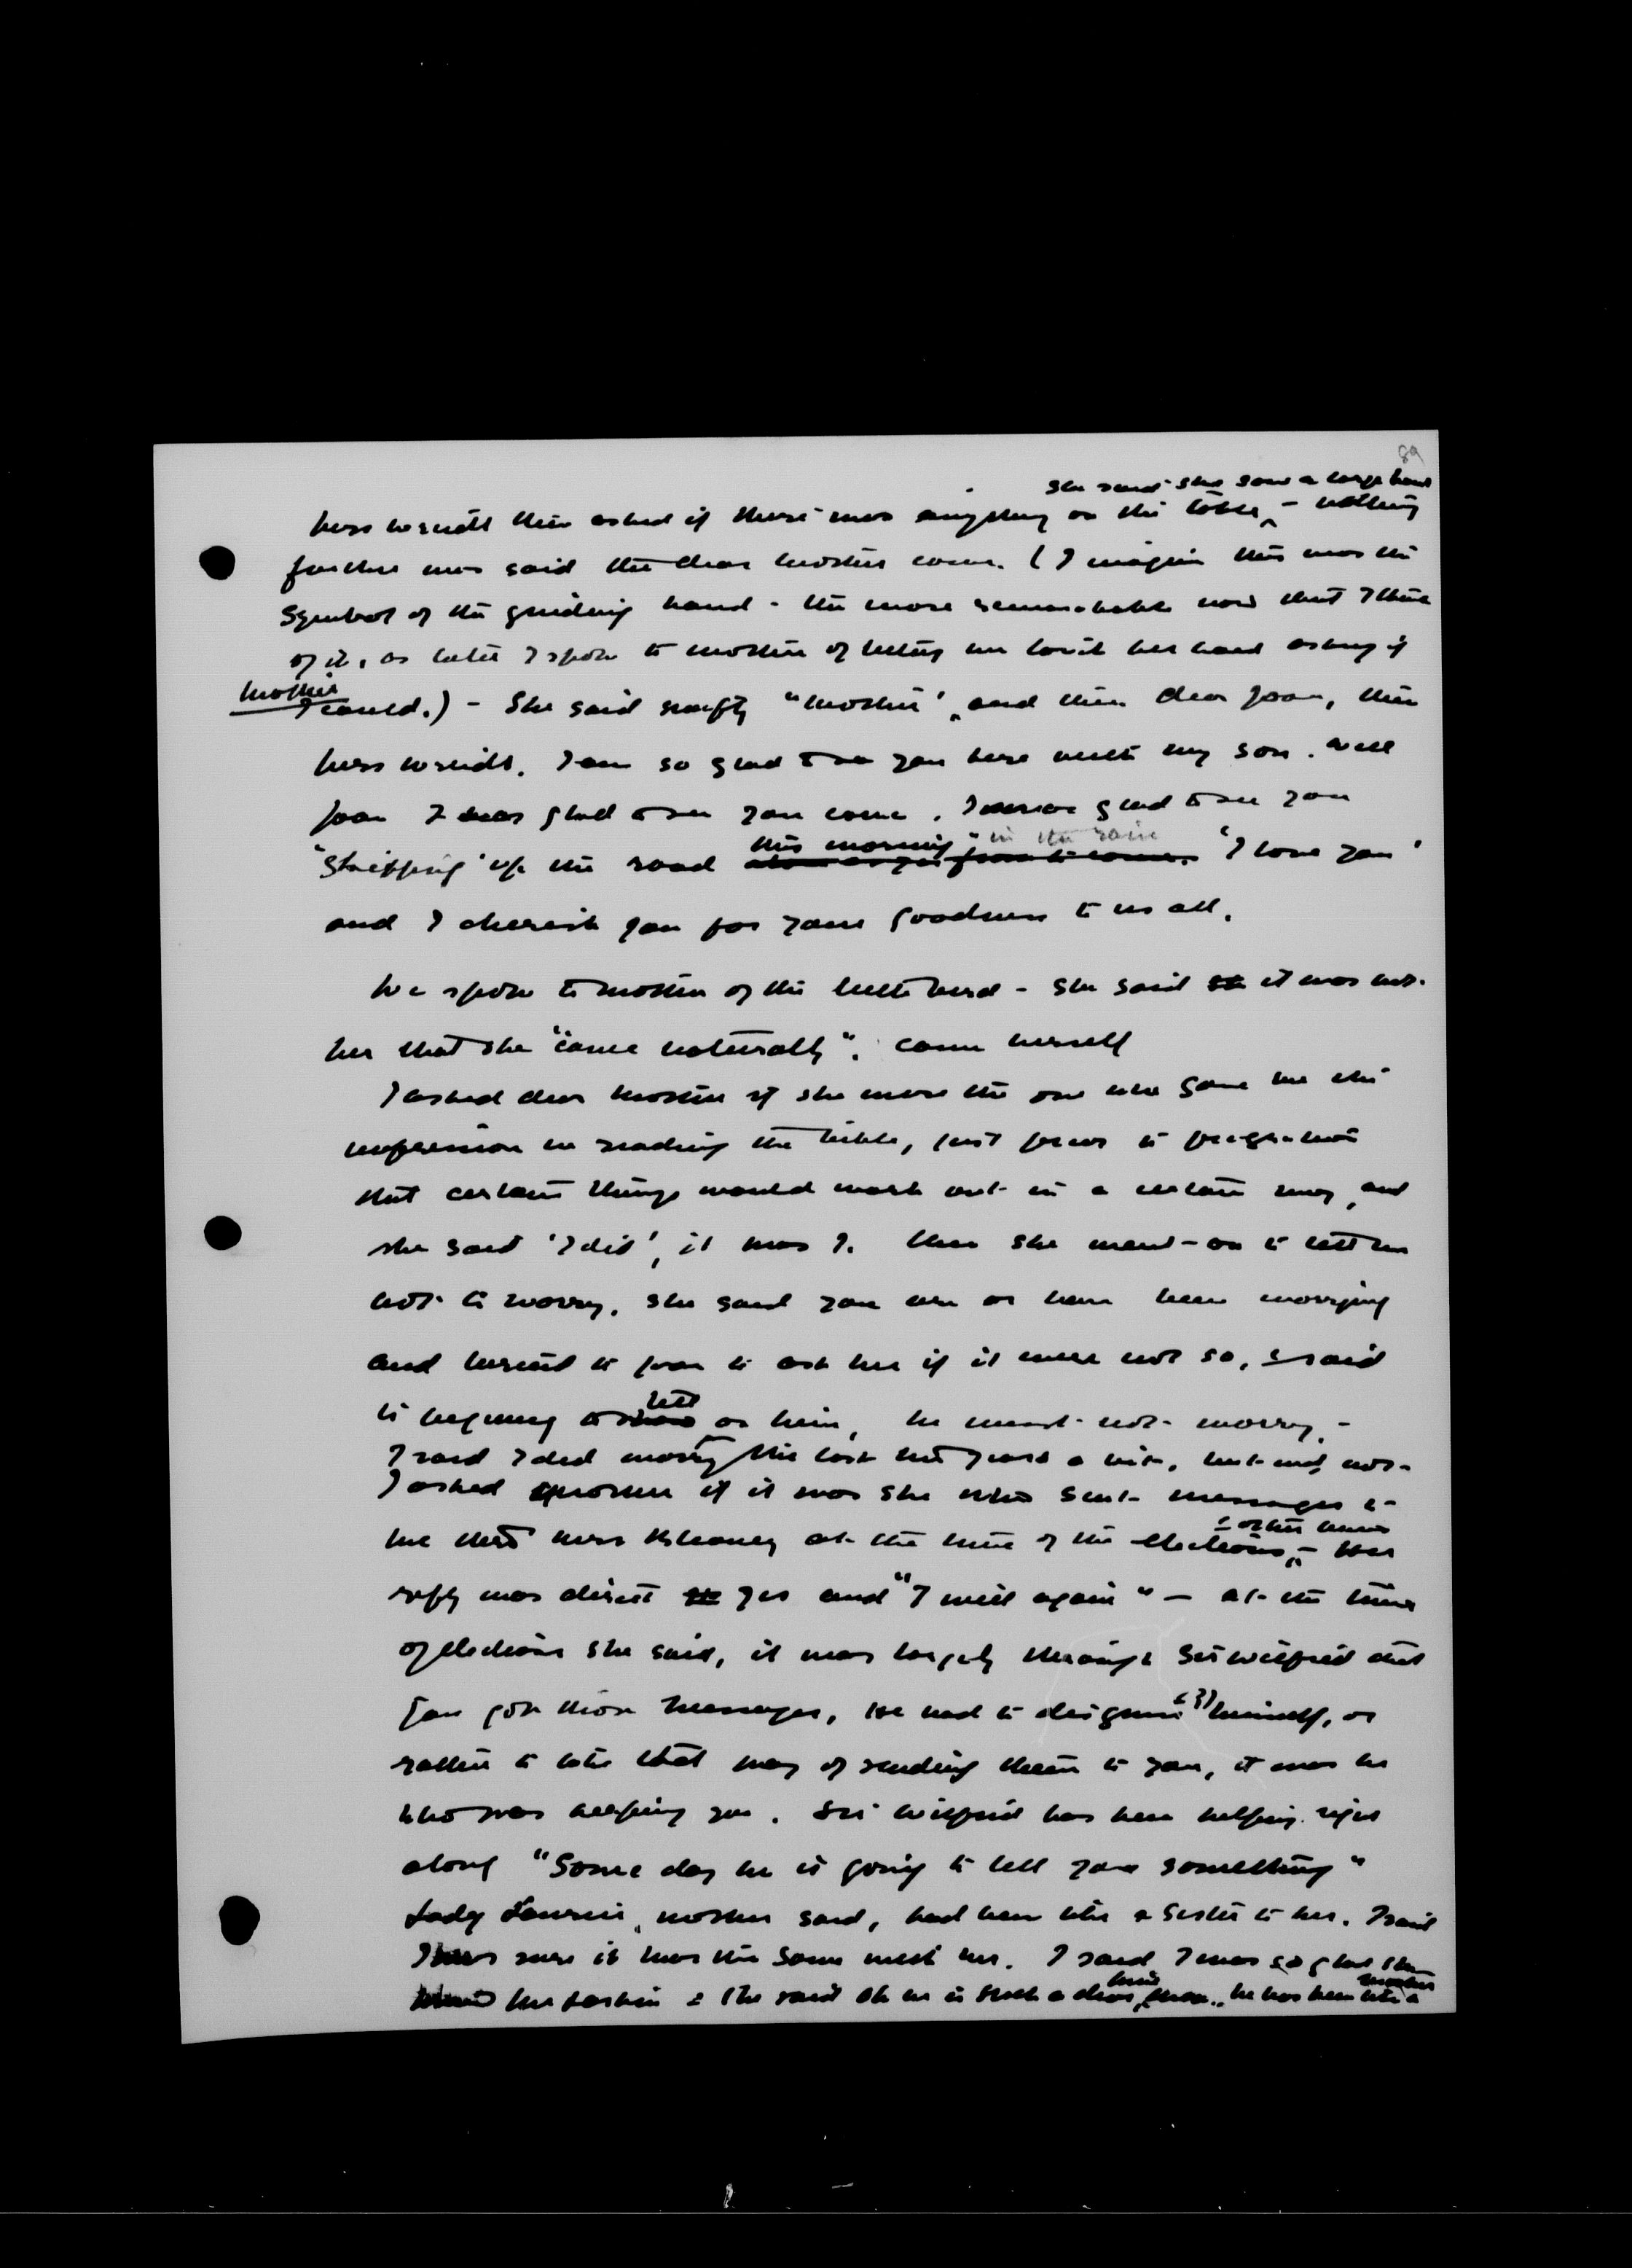 89
she said she saw a large hand
Mrs Wriedt then asked if there was anything on the table, - nothing
further was said till dear Mother came. (I imagine this was the
symbol of the guiding hand - the more remarkable now that I think
of it, as later I spoke to Mother of letting me touch her hand asking if
Mother
I could.) - She said softly "Mother", and then dear Joan, then
Mrs Wriedt. I am so glad to see you here with my son. Well
Joan I was glad to see you come. I was glad to see you
this morning" in the rain
"skipping up the road "I love you"
and I cherish you for your goodness to us all.
We spoke to Mother of the little bird - she said it was not
her that she "came naturally". came herself
I asked dear Mother if she were the one who gave me the
impression in reading the bible, just previous to
that certain things would work out in a certain way, and
she said 'I did', it was I. Then she went on to tell me
not to worry, she said you are or have been worrying
and turned to Joan to ask her if it were not so, & said
is beginning to tell on him, he must not worry. -
I said I did worry the last two years a bit, but not now -
I asked Mother if it was she who sent messages to
& other times
me thro Miss Bleaney at the time of the elections, - Her
reply was direct Yes and "I will again" - at the time
of elections she said, it was largely through Sir Wilfrid that
you got those messages, He had to disguise (?) himself, or
rather to take that way of sending them to you, it was he
who was helping you. Sir Wilfrid has been helping right
along "Some day he is going to tell you something"
Lady Laurier, Mother said, had been like a sister to her. I said
I was sure it was the same with her. I said I was so glad she
had & she said oh he is such a dear man, he has been like a